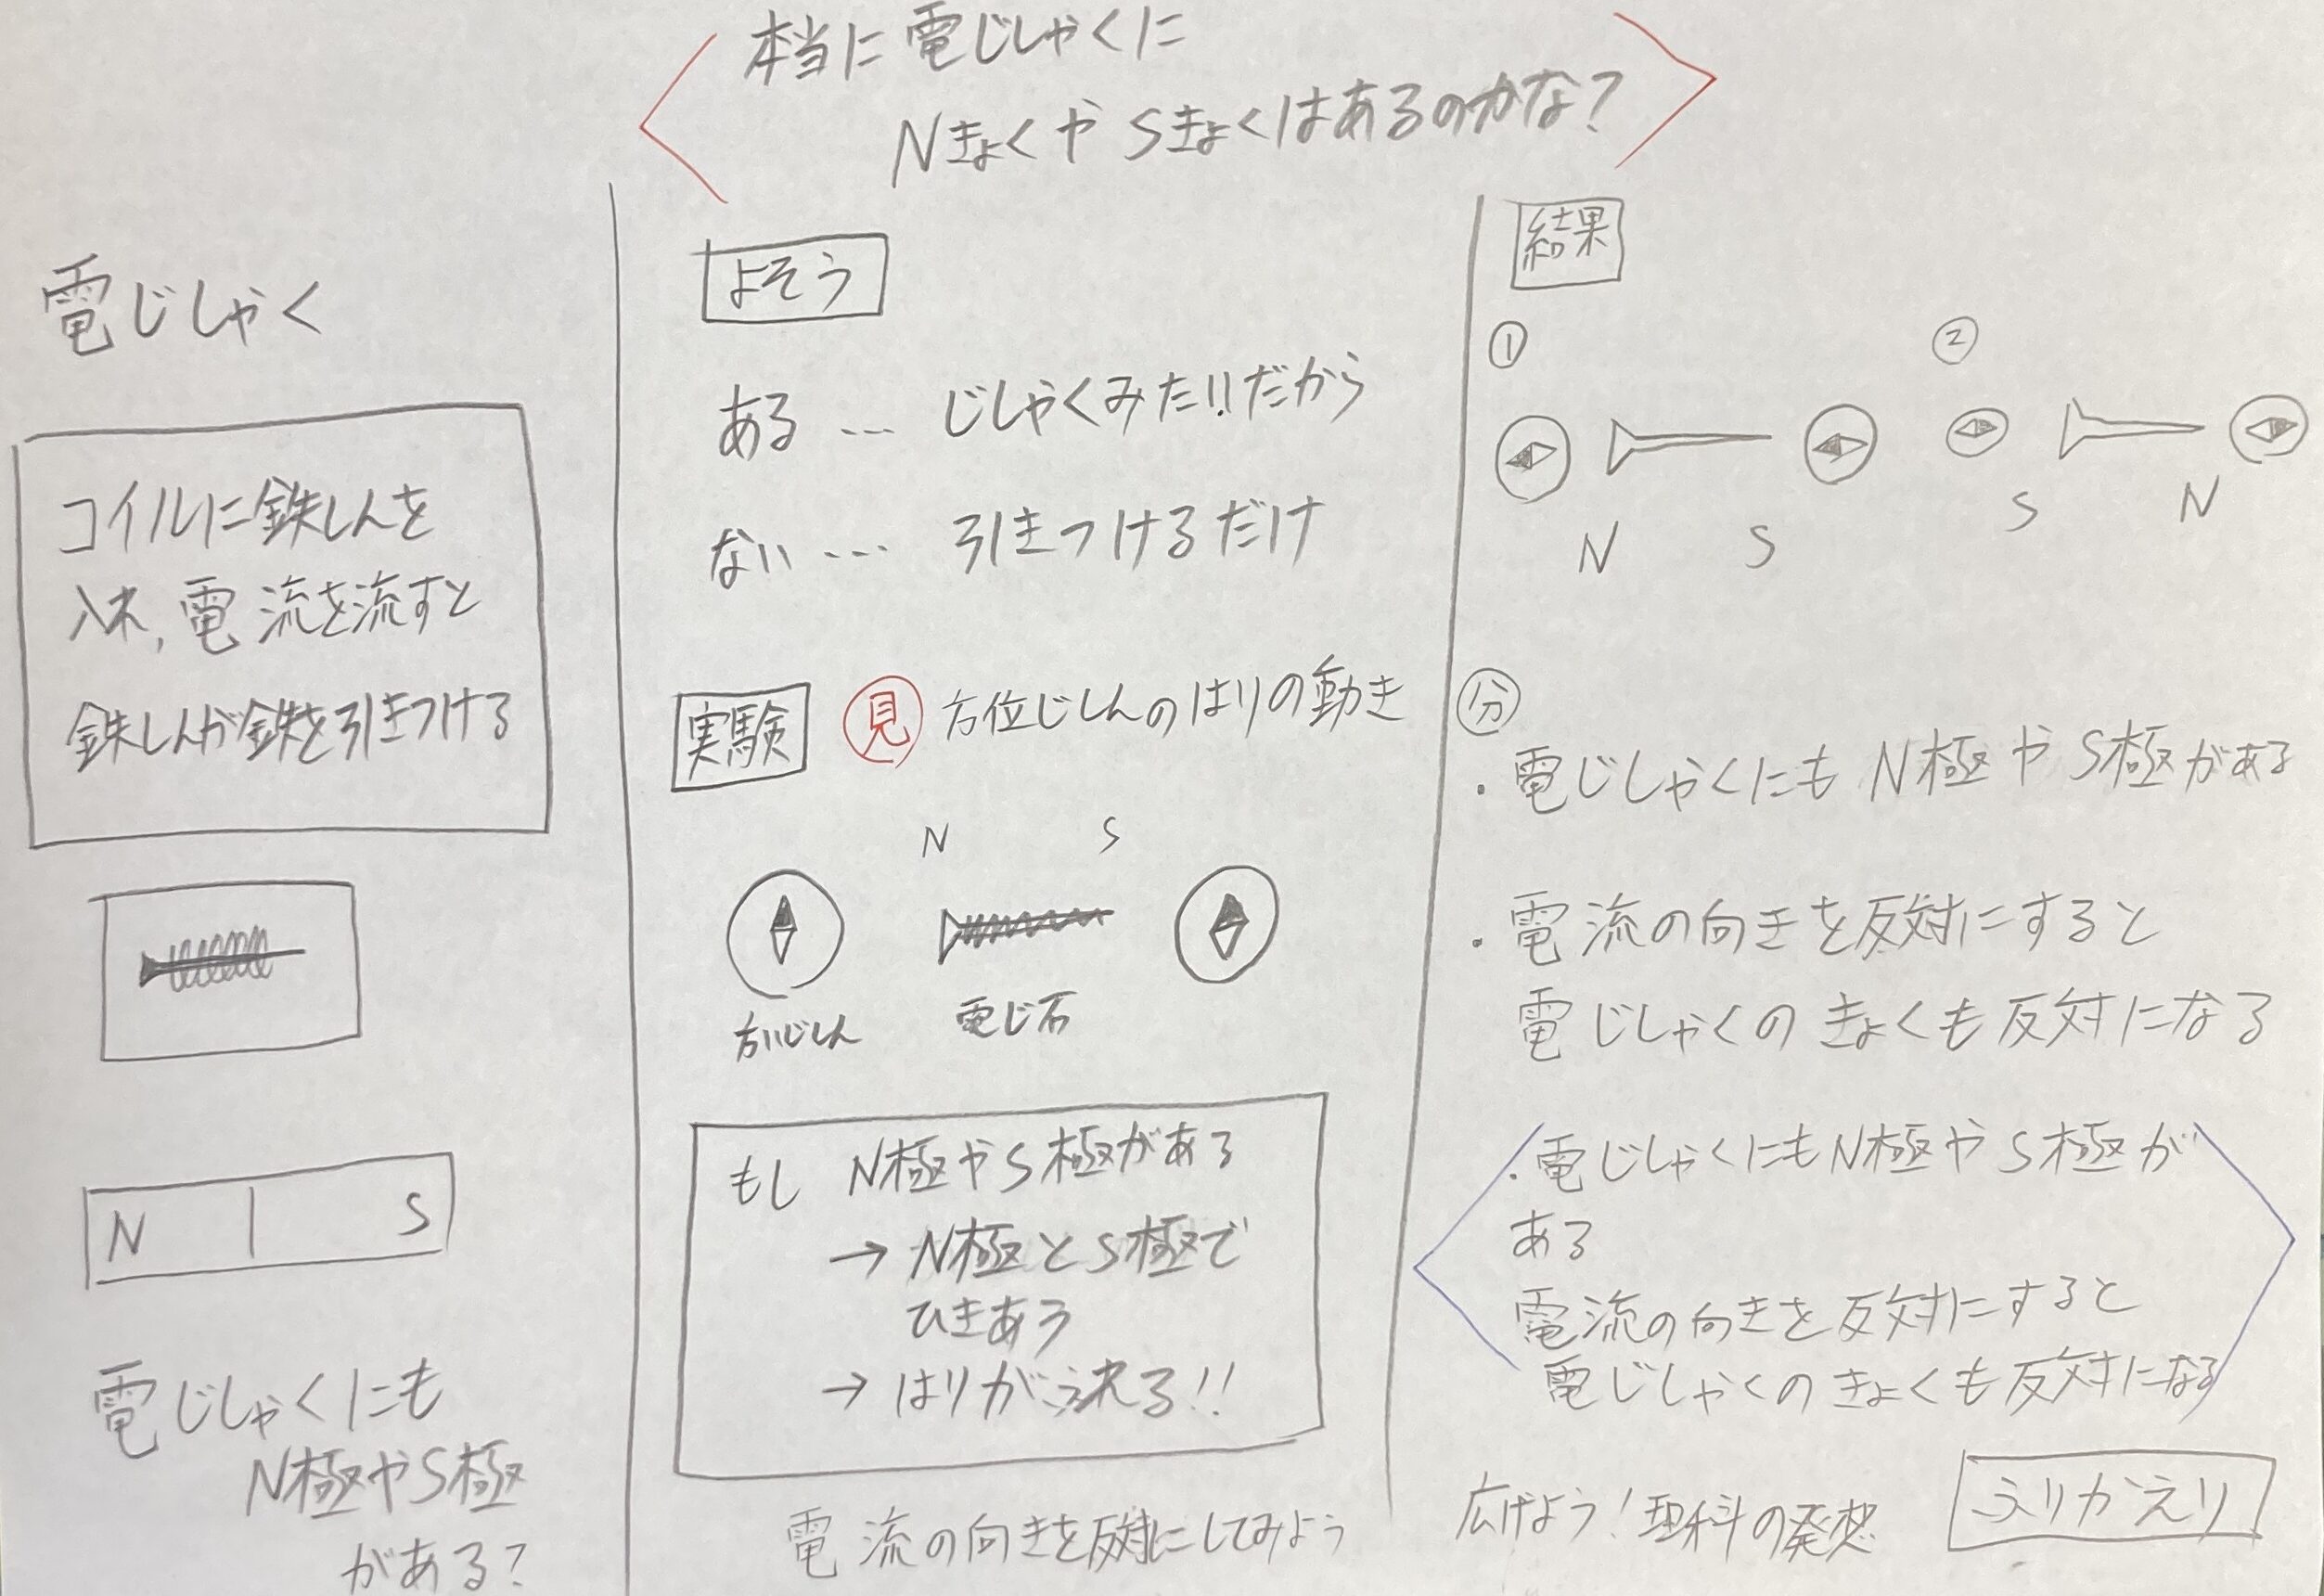 本当に電じしゃくに
NきょくやSきょくはあるのかな?
電じしゃく
コイルに鉄しんを
入れ,電流を流すと
鉄しんが鉄を引きつける
N S
電じしゃくにも
N極やS極
がある?
よそう
ある … じしゃくみたいだから
ない … 引きつけるだけ
実験 見 方位じしんのはりの動き
N S
方いじしん 電じ石
もし N極やS極がある
→ N極とS極で
ひきあう
→ はりがふれる!!
電流の向きを反対にしてみよう
結果
① ②
N S S N
分
・電じしゃくにもN極やS極がある
・電流の向きを反対にすると
電じしゃくのきょくも反対になる
・電じしゃくにもN極やS極が
ある
電流の向きを反対にすると
電じしゃくのきょくも反対になる
広げよう!理科の発想 ふりかえり